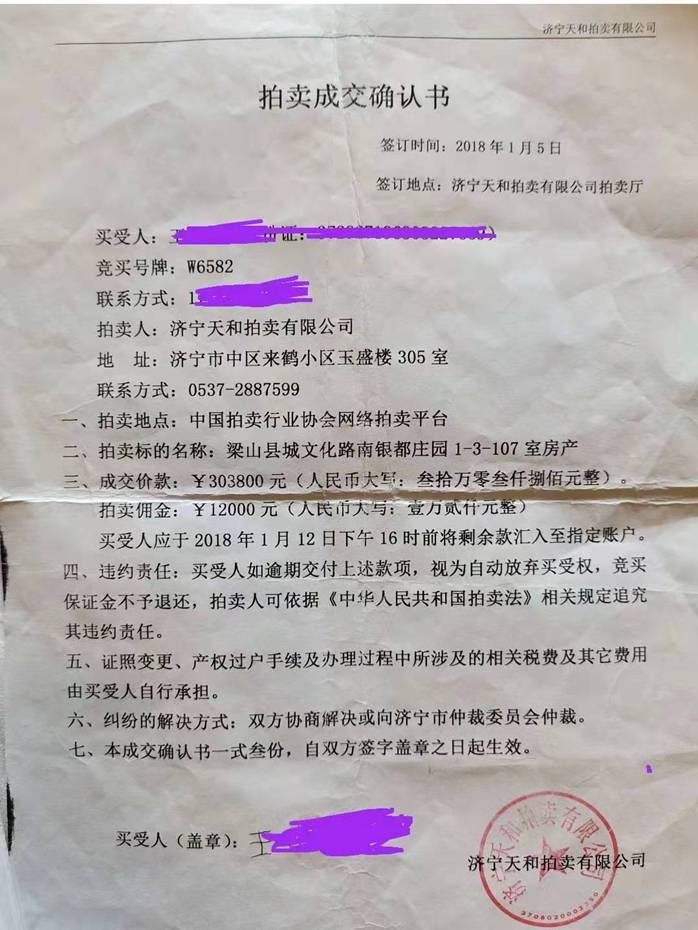 济宁天和拍卖有限公司
拍卖成交确认书
签订时间：2018年1月5日
签订地点：济宁天和拍卖有限公司拍卖厅
买受人：王
竞买号牌：W6582
联系方式：1
拍卖人：济宁天和拍卖有限公司
地 址：济宁市中区来鹤小区玉盛楼305室
联系方式：0537-2887599
一、拍卖地点：中国拍卖行业协会网络拍卖平台
二、拍卖标的名称：梁山县城文化路南银都庄园1-3-107室房产
三、成交价款：￥303800元（人民币大写：叁拾万零叁仟捌佰元整）。
拍卖佣金：￥12000元（人民币大写：壹万贰仟元整）
买受人应于2018年1月12日下午16时前将剩余款汇入至指定账户。
四、违约责任：买受人如逾期交付上述款项，视为自动放弃买受权，竞买
保证金不予退还，拍卖人可依据《中华人民共和国拍卖法》相关规定追究
其违约责任。
五、证照变更、产权过户手续及办理过程中所涉及的相关税费及其它费用
由买受人自行承担。
六、纠纷的解决方式：双方协商解决或向济宁市仲裁委员会仲裁。
七、本成交确认书一式叁份，自双方签字盖章之日起生效。
买受人（盖章）：王
济宁天和拍卖有限公司
济宁天和拍卖有限公司